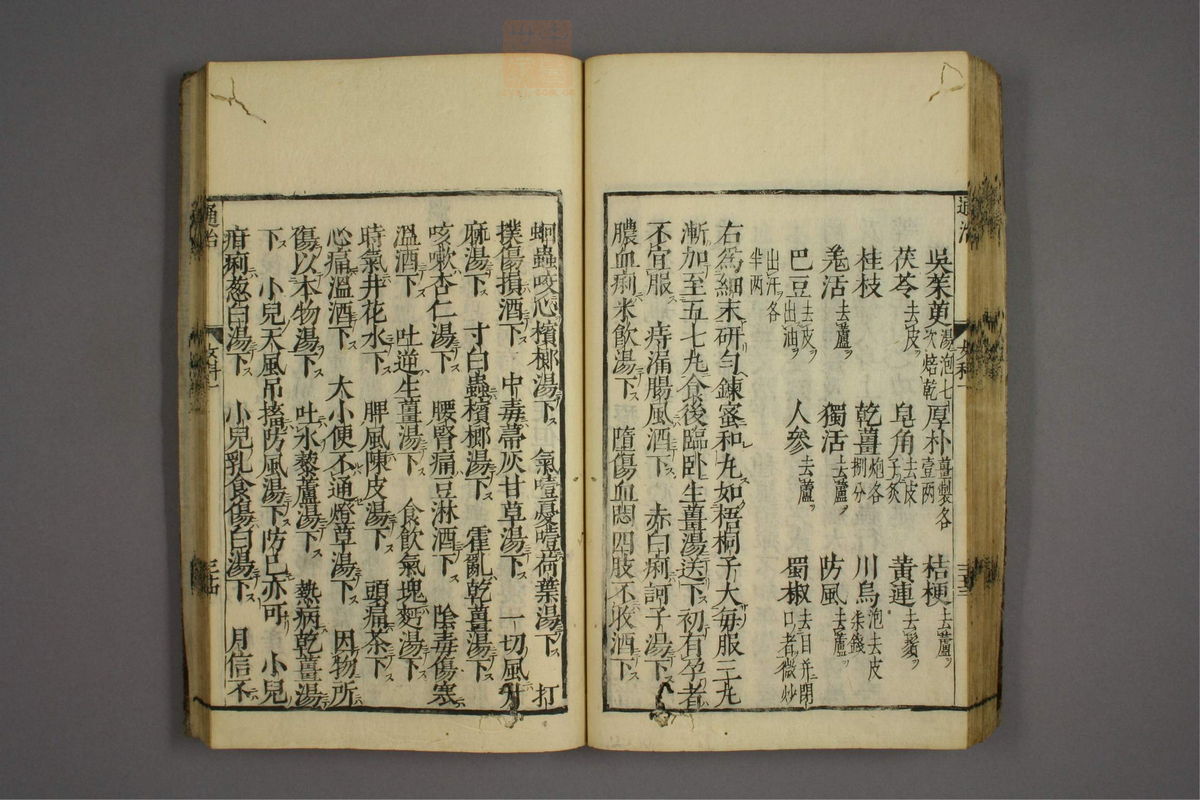 吳茱萸湯泡七次焙乾 厚朴薑製各壹兩 桔梗去蘆ヲ
茯苓去皮ヲ 皂角去皮子炙 黃連去鬚ヲ
桂枝 乾薑炮各捌分 川烏泡去皮
羗活去蘆ヲ 獨活去蘆ヲ 防風去蘆ヲ
巴豆去皮ヲ出油ヲ 人參去蘆ヲ 蜀椒去目并閉口者微炒
出汗ヲ各半兩
右爲細末研勻鍊蜜和丸如梧桐子大每服三丸
漸加至五七丸食後臨卧生薑湯送下初有孕者
不宜服 痔漏腸風酒下 赤白痢訶子湯下
膿血痢米飲湯下 墮傷血悶四肢不收酒下
蛔蟲咬心檳榔湯下 氣噎憂噎荷葉湯下 打
撲傷損酒下 中毒帚灰甘草湯下 一切風升
麻湯下 寸白蟲檳榔湯下 霍亂乾薑湯下
咳嗽杏仁湯下 腰腎痛豆淋酒下 陰毒傷寒
溫酒下 吐逆生薑湯下 食飲氣塊麪湯下
時氣井花水下 脾風陳皮湯下 頭痛茶下
心痛溫酒下 大小便不通燈草湯下 因物所
傷以本物湯下 吐水藜蘆湯下 熱病乾薑湯
下 小兒天風吊搐防風湯下防己亦可 小兒
疳痢葱白湯下 小兒乳食傷白湯下 月信不
通治